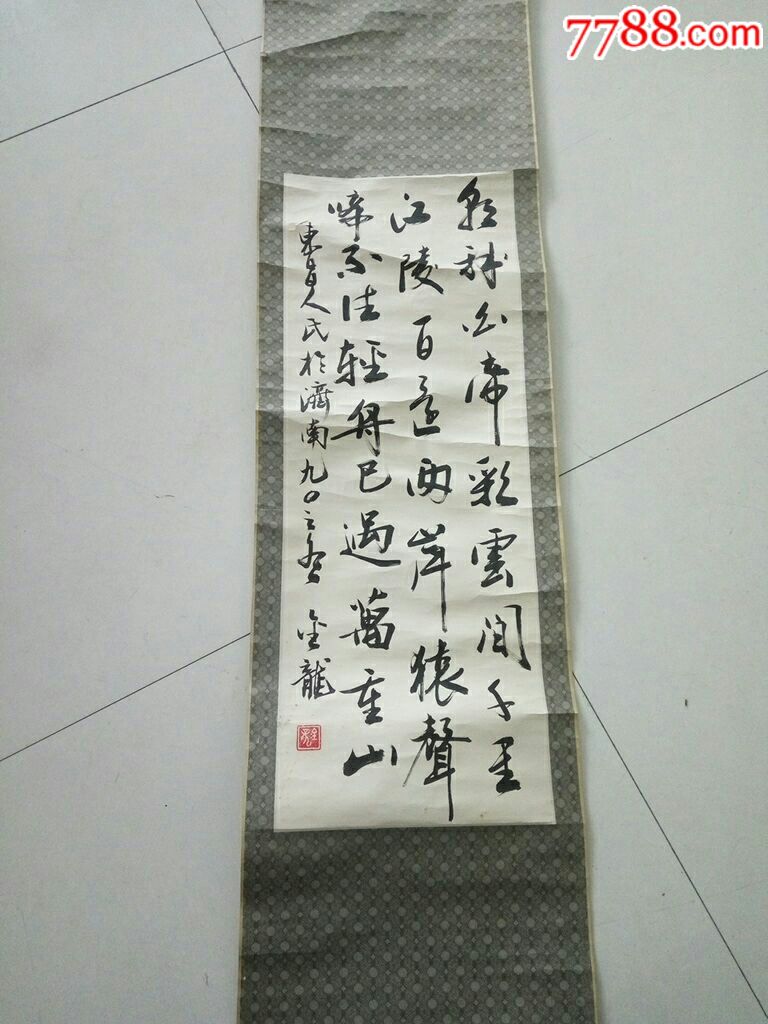 7788.com
朝辭白帝彩雲間千里
江陵一日還兩岸猿聲
啼不住輕舟已過萬重山
東昌人氏於濟南九〇之
金龍